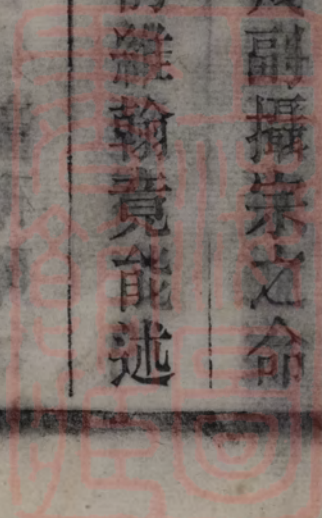 副攝崇之命
維翰竟能述